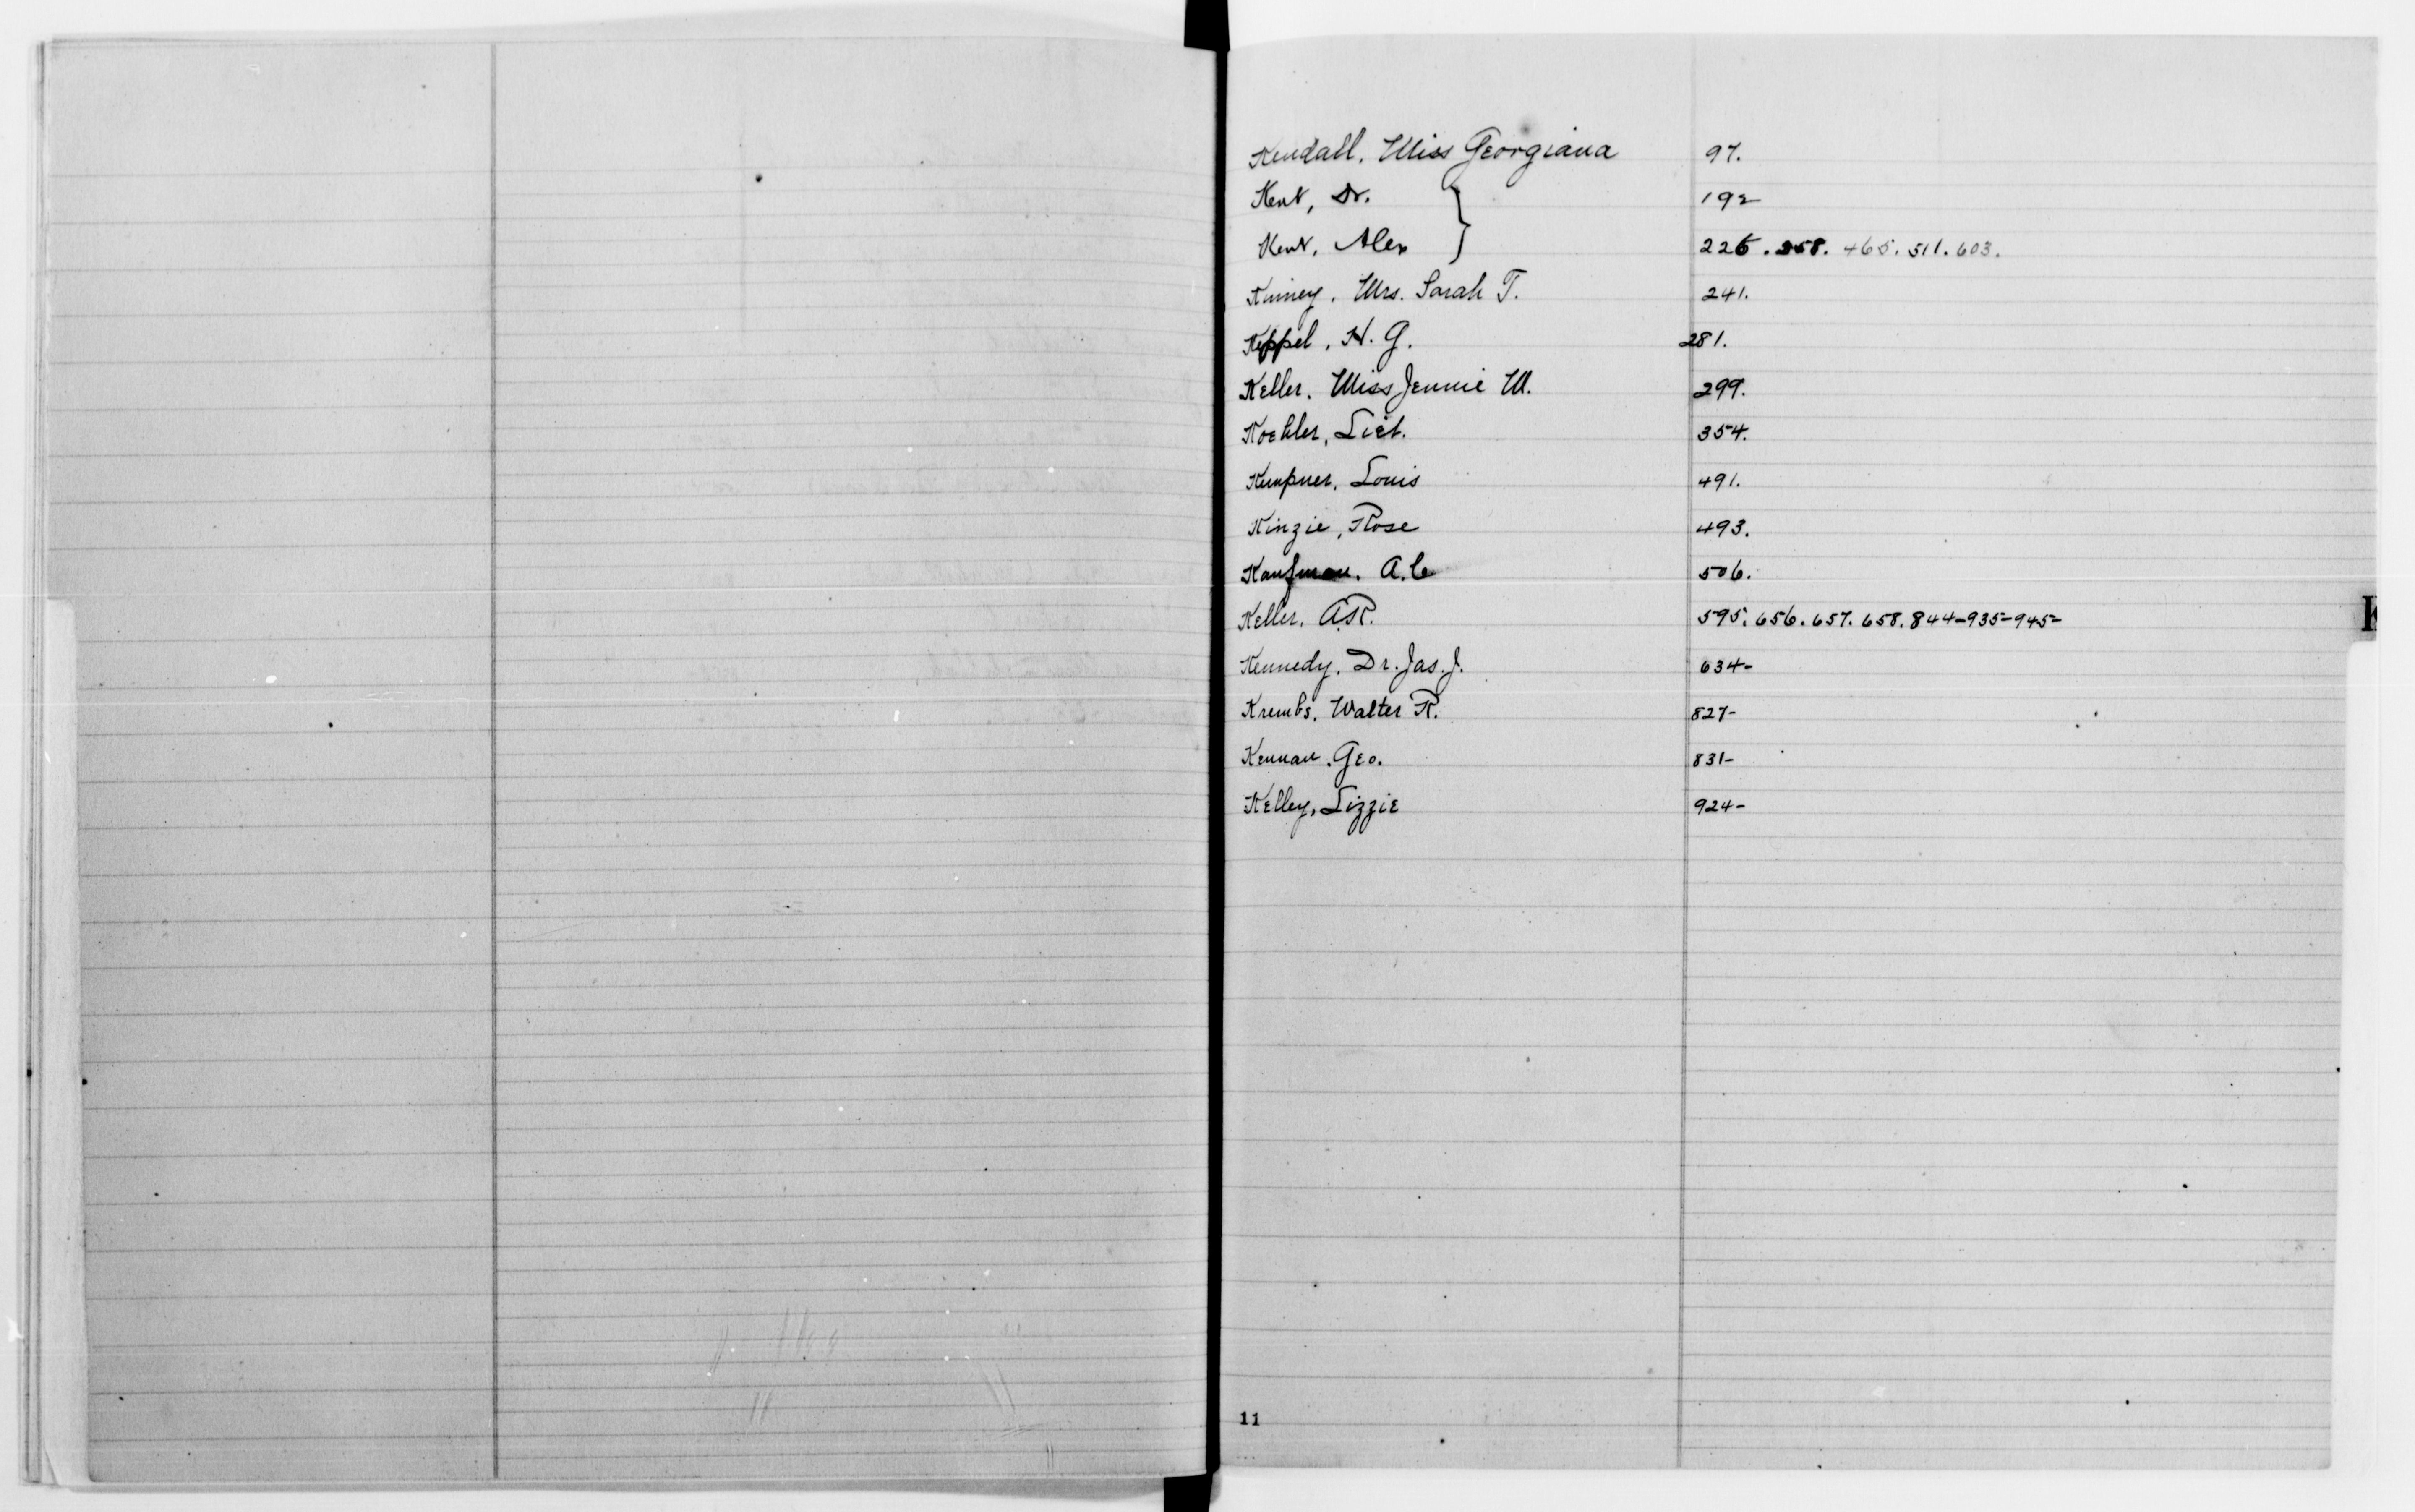 Kendall. Miss Georgiana 97.
Kent, Dr. } 192
Kent, Alex } 226. 258. 465. 511. 603.
Kinney, Mrs. Sarah T. 241.
Keppel, H. G. 281.
Keller. Miss Jennie M. 299.
Koehler, Liet. 354.
Kempner, Louis 491.
Kinzie, Rose 493.
Kaufman. A. C 506.
Keller. A.R. 595. 656. 657. 658. 844-935-945-
Kennedy. Dr. Jas. J. 634-
Krembs. Walter R. 827-
Kennan. Geo. 831-
Kelley, Lizzie 924-
K
11